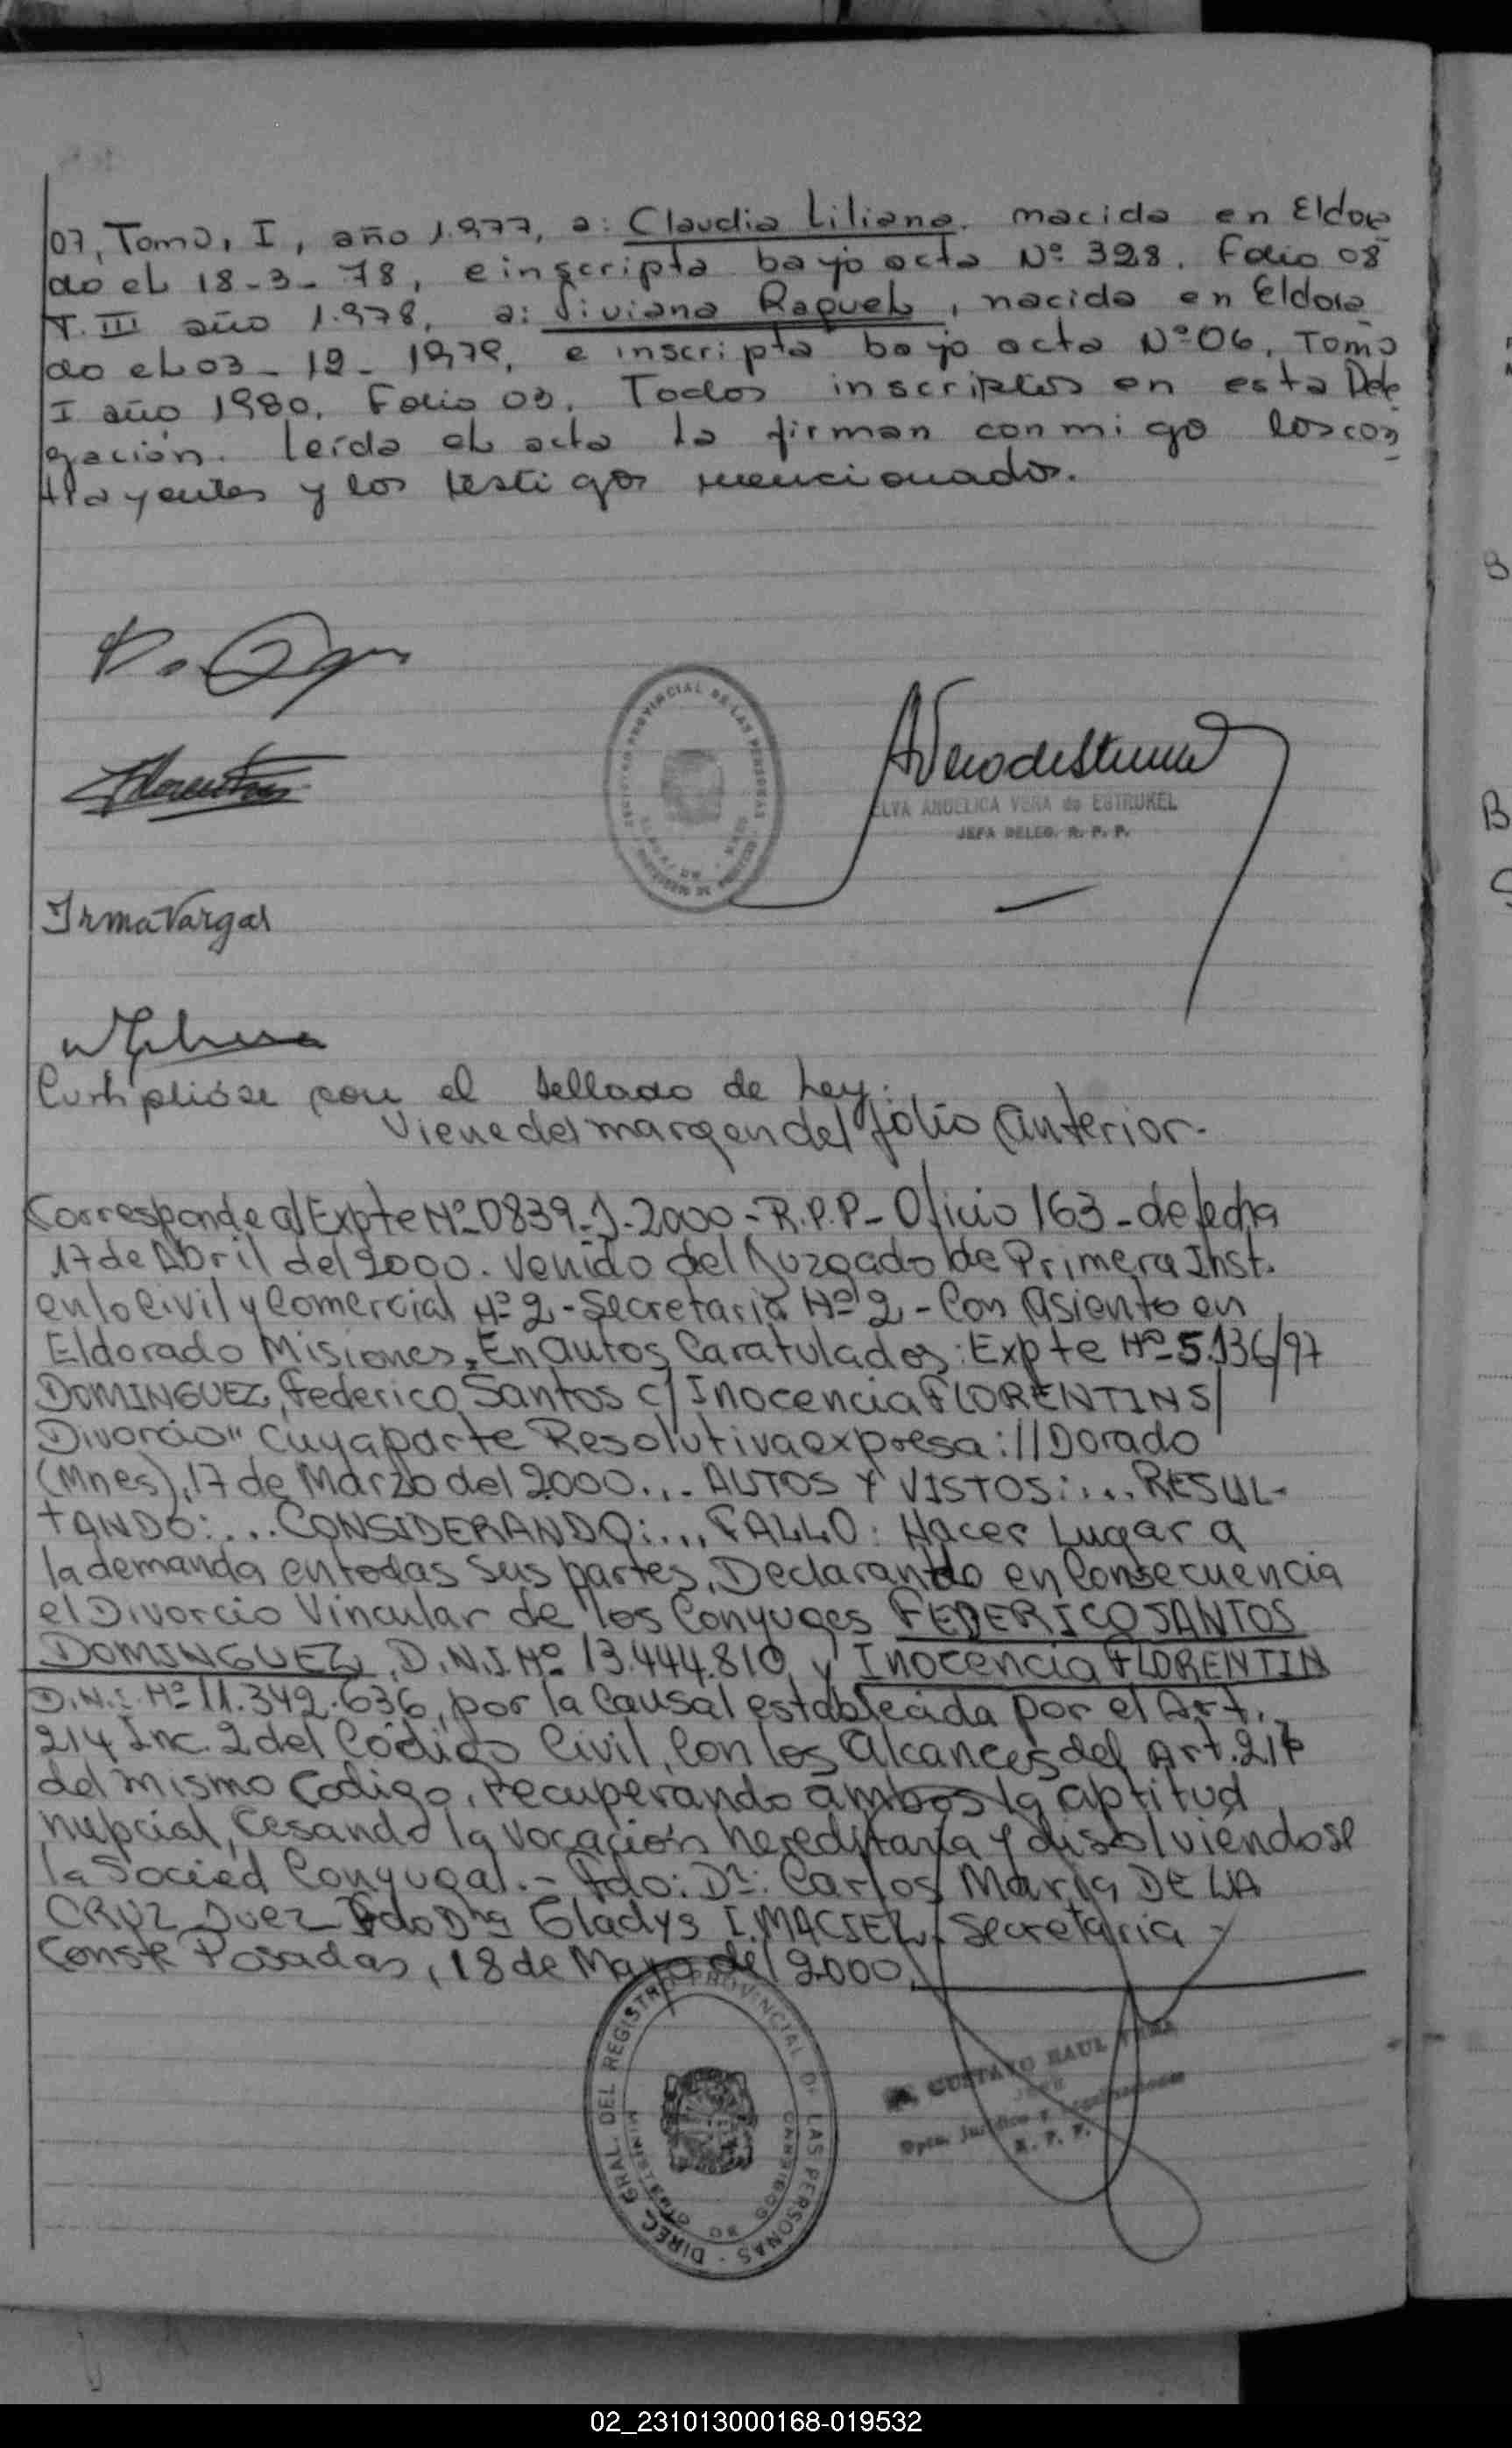 07, Tomo, I, año 1.977, a: Claudia Liliana. nacida en Eldora
do el 18-3-78, e inscripta bajo acta Nº 328. Folio 08
T. III año 1.978, a: Viviana Raquel, nacida en Eldora
do el 03-12-1979, e inscripta bajo acta Nº 06, Tomo
I año 1980, Folio 03. Todos inscriptos en esta Dele
gación. Leída el acta la firman conmigo los con
trayentes y los testigos mencionados.
REGISTRO PROVINCIAL DE LAS PERSONAS
ELVA ANGELICA VERA de ESTRUKEL
JEFA DELEG. R. P. P.
Irma Vargas
Cumplióse con el sellado de Ley.
Viene del margen del folio anterior.
Corresponde al Expte Nº 0839-J-2000-R.P.P- Oficio 163-de fecha
17 de Abril del 2000. Venido del Juzgado de Primera Inst.
en lo Civil y Comercial Nº 2-Secretaria Nº 2-Con asiento en
Eldorado Misiones. En autos Caratulados: Expte Nº 5.136/97
DOMINGUEZ, Federico Santos c/ Inocencia FLORENTIN S/
Divorcio" cuya parte Resolutiva expresa: //Dorado
(Mnes), 17 de Marzo del 2.000... AUTOS Y VISTOS:... RESUL-
TANDO:... CONSIDERANDO:... FALLO: Hacer Lugar a
la demanda en todas sus partes, Declarando en Consecuencia
el Divorcio Vincular de los Conyuges FEDERICO SANTOS
DOMINGUEZ, D.N.I. Nº 13.444.810 y Inocencia FLORENTIN
D.N.I. Nº 11.342.636, por la Causal establecida por el Art.
214 Inc. 2 del Código Civil, Con los alcances del Art. 217
del mismo Codigo, recuperando ambos la aptitud
nupcial, cesando la vocación hereditaria y disolviéndose
la Socied Conyugal.- Fdo: Dr: Carlos María DE LA
CRUZ Juez Fdo Dra Gladys I. MACIEL. Secretaria
Conste Posadas, 18 de Mayo del 2000.
DIREC. GRAL. DEL REGISTRO PROVINCIAL DE LAS PERSONAS
MINISTERIO DE GOBIERNO
GUSTAVO RAUL
JEFE
R. P. P.
02_231013000168-019532